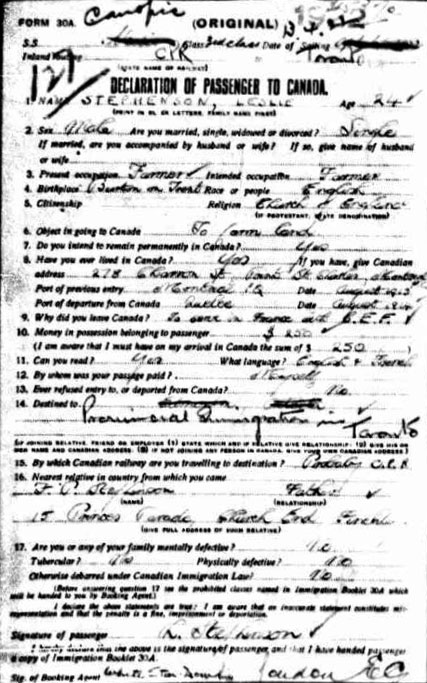 Canopic
FORM 30A. (ORIGINAL)
S.S. Class 3rd class Date of Sailing
Inland Routing CPR Toronto
(STATE NAME OF RAILWAY)
127
DECLARATION OF PASSENGER TO CANADA.
1. NAME STEPHENSON, LESLIE Age 24
(PRINT IN BLOCK LETTERS, FAMILY NAME FIRST)
2. Sex Male Are you married, single, widowed or divorced? Single
If married, are you accompanied by husband or wife? If so, give name of husband
or wife
3. Present occupation Farmer Intended occupation Farmer
4. Birthplace Burton on Trent Race or people English
5. Citizenship Religion Church of England
(IF PROTESTANT, STATE DENOMINATION)
6. Object in going to Canada To farm land
7. Do you intend to remain permanently in Canada? Yes
8. Have you ever lived in Canada? Yes If you have, give Canadian
address 278
Port of previous entry Montreal P.Q Date August 1913
Port of departure from Canada Quebec Date August
9. Why did you leave Canada? To serve in France with C.E.F.
10. Money in possession belonging to passenger $ 250
(I am aware that I must have on my arrival in Canada the sum of $ 250 )
11. Can you read? Yes What language? English &
12. By whom was your passage paid? Myself
13. Ever refused entry to, or deported from Canada? No
14. Destined to
Provincial Immigration
Toronto
(IF JOINING RELATIVE, FRIEND OR EMPLOYER (1) STATE WHICH AND IF RELATIVE GIVE RELATIONSHIP: (2) GIVE HIS OR
HER NAME AND CANADIAN ADDRESS. (3) IF NOT JOINING ANY PERSON IN CANADA, GIVE YOUR OWN CANADIAN ADDRESS)
15. By which Canadian railway are you travelling to destination? Probably C.P.R
16. Nearest relative in country from which you came
F. P. Stephenson Father
(NAME) (RELATIONSHIP)
15 Princes Parade Church End Finchley
(GIVE FULL ADDRESS OF SUCH RELATIVE)
17. Are you or any of your family mentally defective? No
Tubercular? No Physically defective? No
Otherwise debarred under Canadian Immigration Law? No
(Before answering question 17 see the prohibited classes named in Immigration Booklet 30A which
will be handed to you by Booking Agent.)
I declare the above statements are true: I am aware that an inaccurate statement constitutes mis-
representation and that the penalty is a fine, imprisonment or deportation.
Signature of passenger L. Stephenson
I hereby declare that the above is the signature of passenger, and that I have handed passenger
a copy of Immigration Booklet 30A.
Sig. of Booking Agent London E.C.